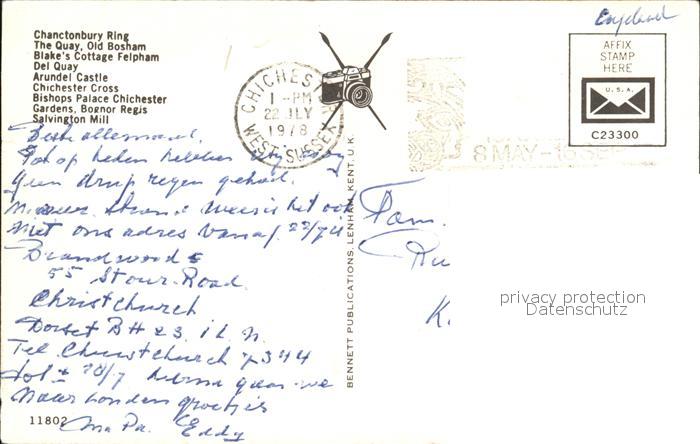 Chanctonbury Ring
The Quay, Old Bosham
Blake's Cottage Felpham
Del Quay
Arundel Castle
Chichester Cross
Bishops Palace Chichester
Gardens, Bognor Regis
Salvington Mill
England
AFFIX
STAMP
HERE
U.S.A.
C23300
CHICHESTER
1-PM
22 JLY
1978
WEST SUSSEX
8 MAY-16 SEP
Beste allemaal.
Tot op heden hebben wy nog
geen drup regen gehad.
het ook
Met ons adres vanaf 22/7
Brandwoods
55 Stour Road.
Christchurch
Dorset BH23. 1 L.N.
Tel Christchurch
gaan we
Naar Londen groetjes
Ma Pa. Eddy
11802
BENNETT PUBLICATIONS, LENHAM, KENT, U.K.
Fam.
Ru
K.
privacy protection
Datenschutz